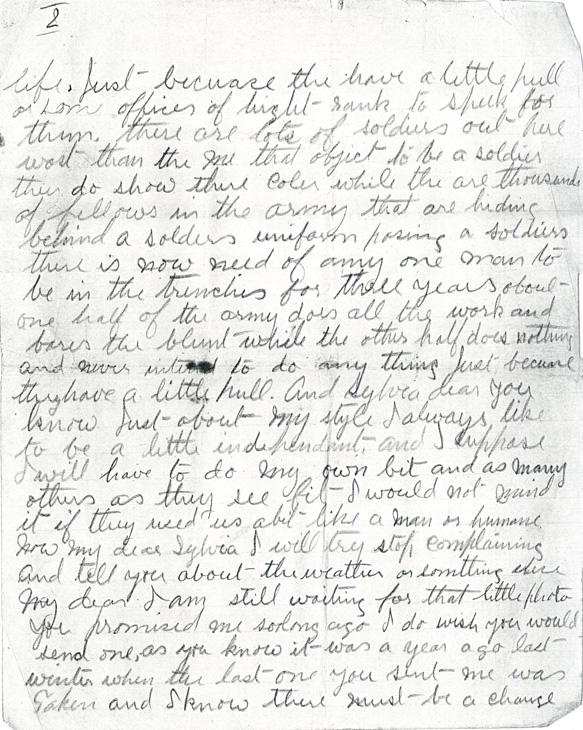 2
life. Just becuase the have a little pull
or som offices of hight rank to speek for
them. there are lots of soldiers out here
worst than the me that object to be a soldier
they do show there coler while the are thousands
of fellows in the army that are hiding
behind a soldiers uniform posing a soldiers
there is now need of amy one man to
be in the trenches for three years about
one half of the army does all the work and
bares the blunt while the other half does nothing
and never intend to do any thing Just becuase
they have a little pull. And Sylvia dear you
know Just about my style I always like
to be a little independant, and I suppose
I will have to do my own bit and as many
others as they see fit I would not mind
it if they used us abit like a man or humane
now my dear Sylvia I will try stop complaining
and tell you about the weather or somtting else
My dear I am still waiting for that little photo
you promised me so long ago I do wish you would
send one, as you know it was a year ago last
winter when the last one you sent me was
Taken and I know there must be a change